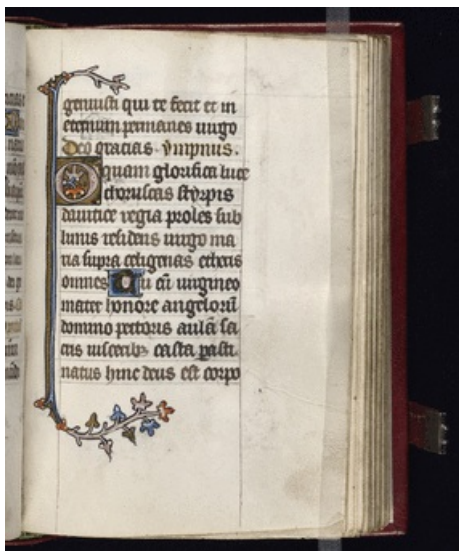 genuisti qui te fecit et in
eternum permanes uirgo
Deo gracias. Ympnus.
O quam glorifica luce
choruscas styrpis
dauitice regia proles sub
limis residens uirgo ma
ria supra celigenas etheris
omnes Tu cū uirgineo
mater honore angelorū
domino pectoris aulā sa
cris uisceribꝫ casta parasti
natus hinc deus est corpo